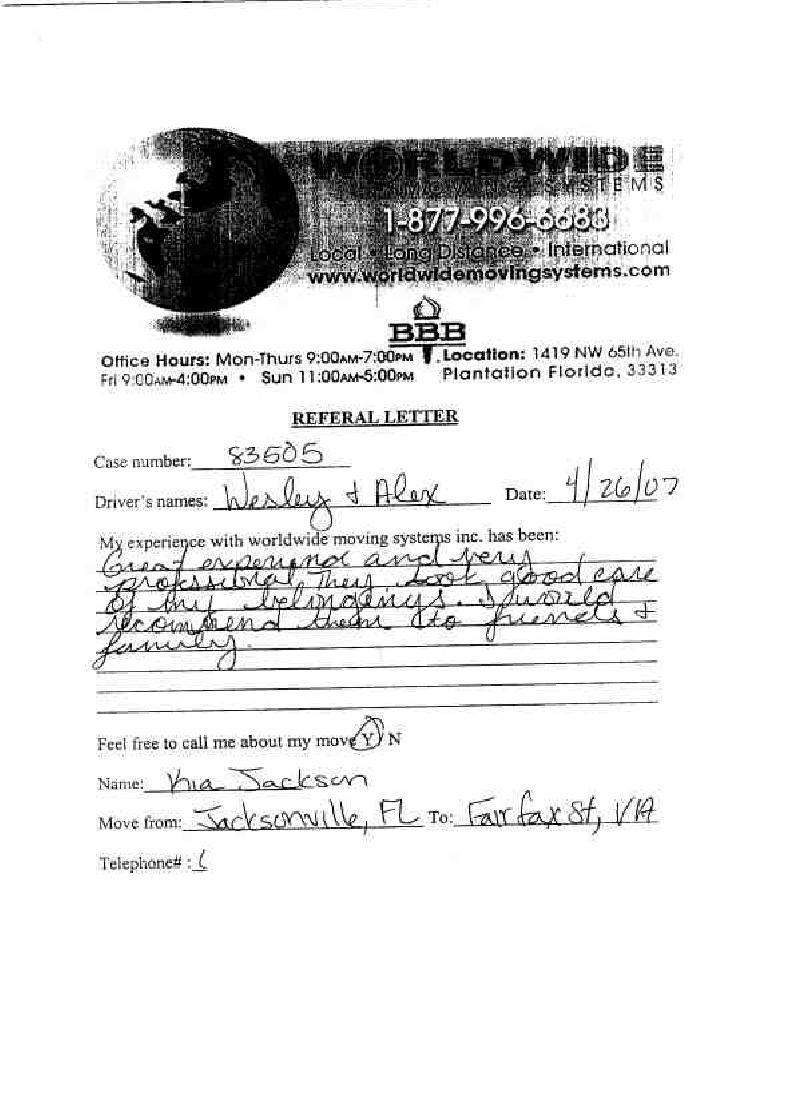 WORLDWIDE
MOVING SYSTEMS
1-877-996-6683
Local • Long Distance • International
www.worldwidemovingsystems.com
BBB
Office Hours: Mon-Thurs 9:00AM-7:00PM
Fri 9:00AM-4:00PM • Sun 11:00AM-5:00PM
Location: 1419 NW 65th Ave.
Plantation Florida, 33313
REFERAL LETTER
Case number: 83605
Driver's names: Wesley & Alex Date: 4/26/07
My experience with worldwide moving systems inc. has been:
Great and very
professional, They took good care
of my belongings. I would
recommend them to friends &
family.
Feel free to call me about my move Y N
Name: Kia Jackson
Move from: Jacksonville, FL To: Fairfax St, VA
Telephone# : (